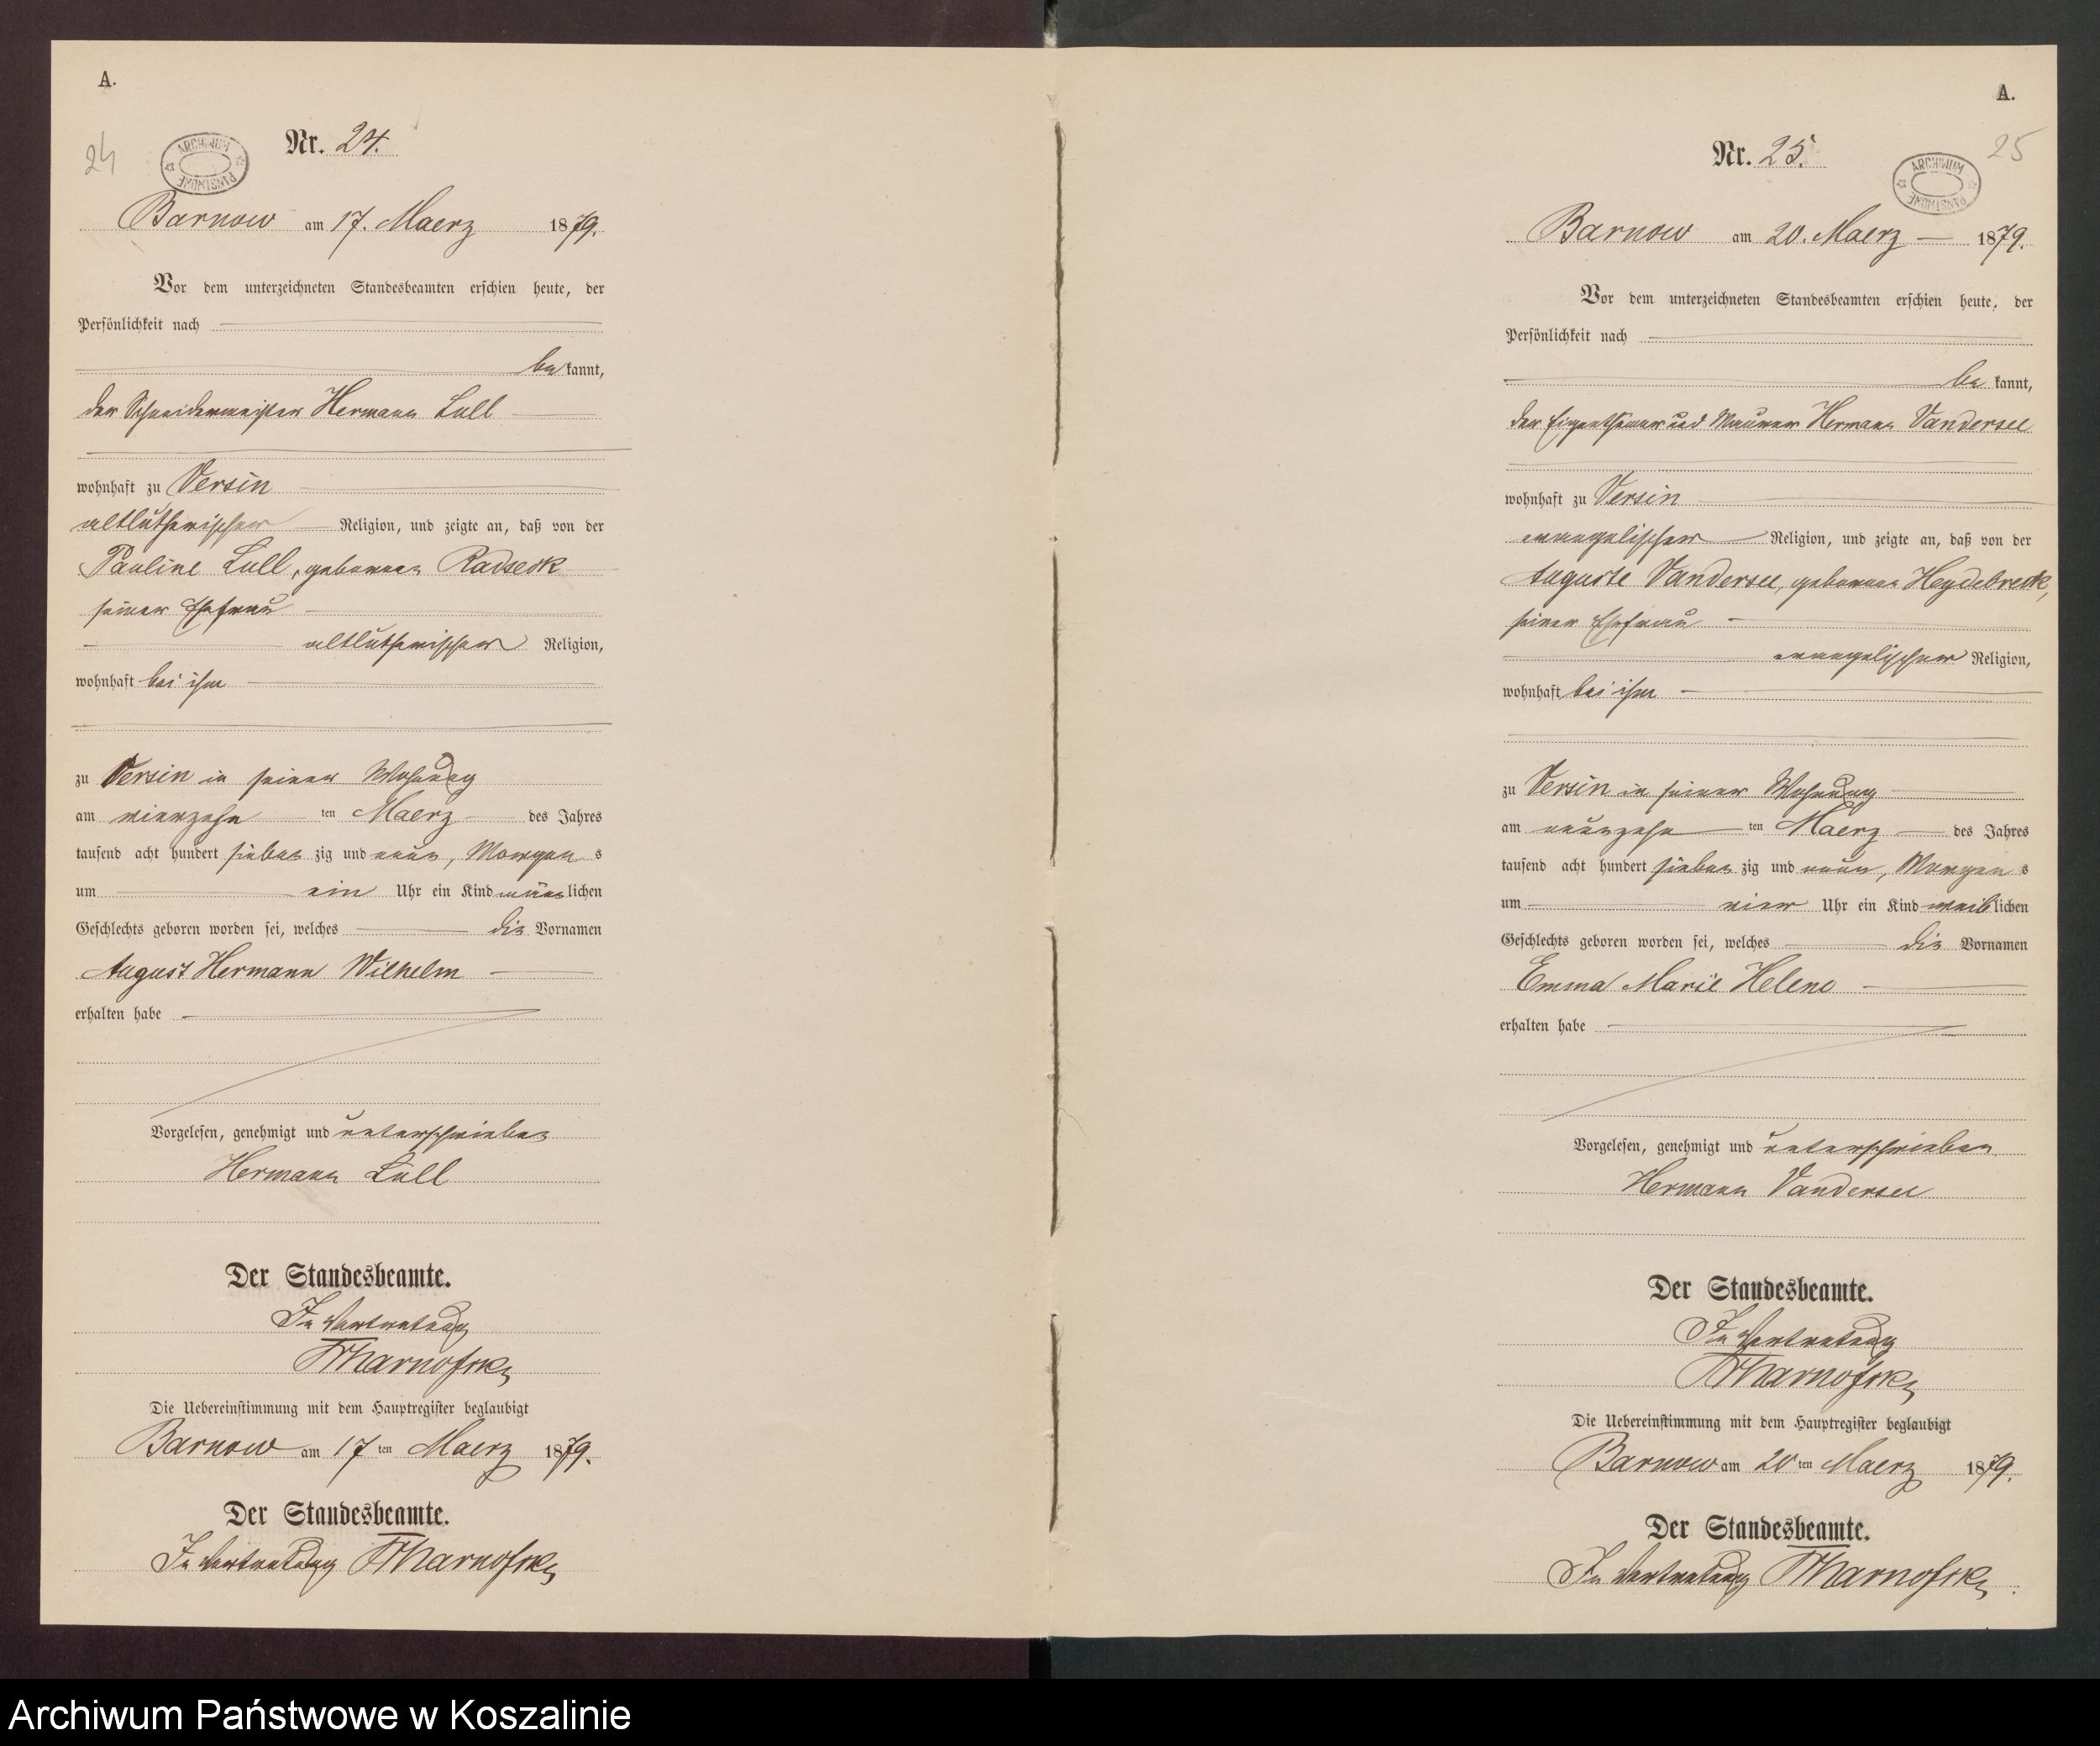 A.
24
ARCHIWUM PAŃSTWOWE
Nr. 24.
Barnow am 17. Maerz 1879.
Vor dem unterzeichneten Standesbeamten erschien heute, der
Persönlichkeit nach
bekannt,
der Schneidermeister Hermann Lüll
wohnhaft zu Versin
altlutherischer Religion, und zeigte an, daß von der
Pauline Lüll, geborenen Radseck
seiner Ehefrau
altlutherischer Religion,
wohnhaft bei ihm
zu Versin in seiner Wohnung
am vierzehn ten Maerz des Jahres
tausend acht hundert sieben zig und neun, Morgen s
um ein Uhr ein Kind männlichen
Geschlechts geboren worden sei, welches die Vornamen
August Hermann Wilhelm
erhalten habe
Vorgelesen, genehmigt und unterschrieben
Hermann Lüll
Der Standesbeamte.
In Vertretung
Die Uebereinstimmung mit dem Hauptregister beglaubigt
Barnow am 17 ten Maerz 1879.
Der Standesbeamte.
In Vertretung
A.
25
ARCHIWUM PAŃSTWOWE
Nr. 25.
Barnow am 20. Maerz 1879.
Vor dem unterzeichneten Standesbeamten erschien heute, der
Persönlichkeit nach
bekannt,
der Eigenthümer und Maurer Hermann Vandersee
wohnhaft zu Versin
evangelischer Religion, und zeigte an, daß von der
Auguste Vandersee, geborenen Heydebreck,
seiner Ehefrau
evangelischer Religion,
wohnhaft bei ihm
zu Versin in seiner Wohnung
am neunzehn ten Maerz des Jahres
tausend acht hundert sieben zig und neun, Morgen s
um vier Uhr ein Kind weiblichen
Geschlechts geboren worden sei, welches die Vornamen
Emma Marie Helene
erhalten habe
Vorgelesen, genehmigt und unterschrieben
Hermann Vandersee
Der Standesbeamte.
In Vertretung
Die Uebereinstimmung mit dem Hauptregister beglaubigt
Barnow am 20 ten Maerz 1879.
Der Standesbeamte.
In Vertretung
Archiwum Państwowe w Koszalinie